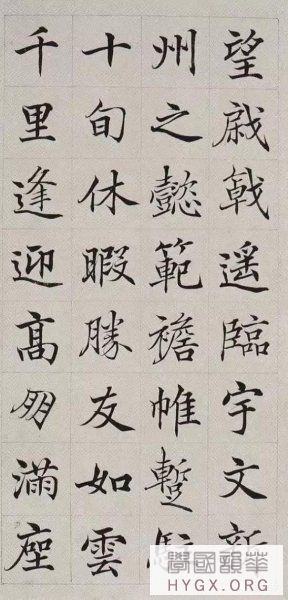 望戟遥臨宇文新
州之懿範襜帷蹔
十旬休暇勝友如雲
千里逢迎髙朋滿座
華韻國學
HYGX.ORG